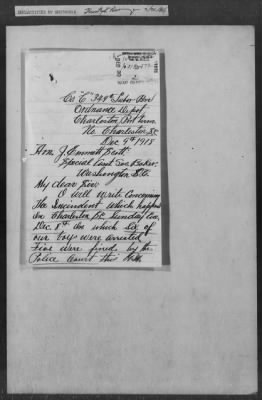 DECLASSIFIED BY AUTHORITY
Co. C 348th Labor Bn
Ordnance Depot
Charleston Port Term.
No. Charleston, S.C.
Dec 9th 1918
Hon. J. Emmett Scott,
Special Asst. Sec. Baker,
Washington D.C.
My dear Sir:
I will write Concerning
The Inscindent which happen
in Charleston S.C. Sunday Eve,
Dec. 8th in which six of
our boys were arrested
Five were fined by the
Police Court this A.M.